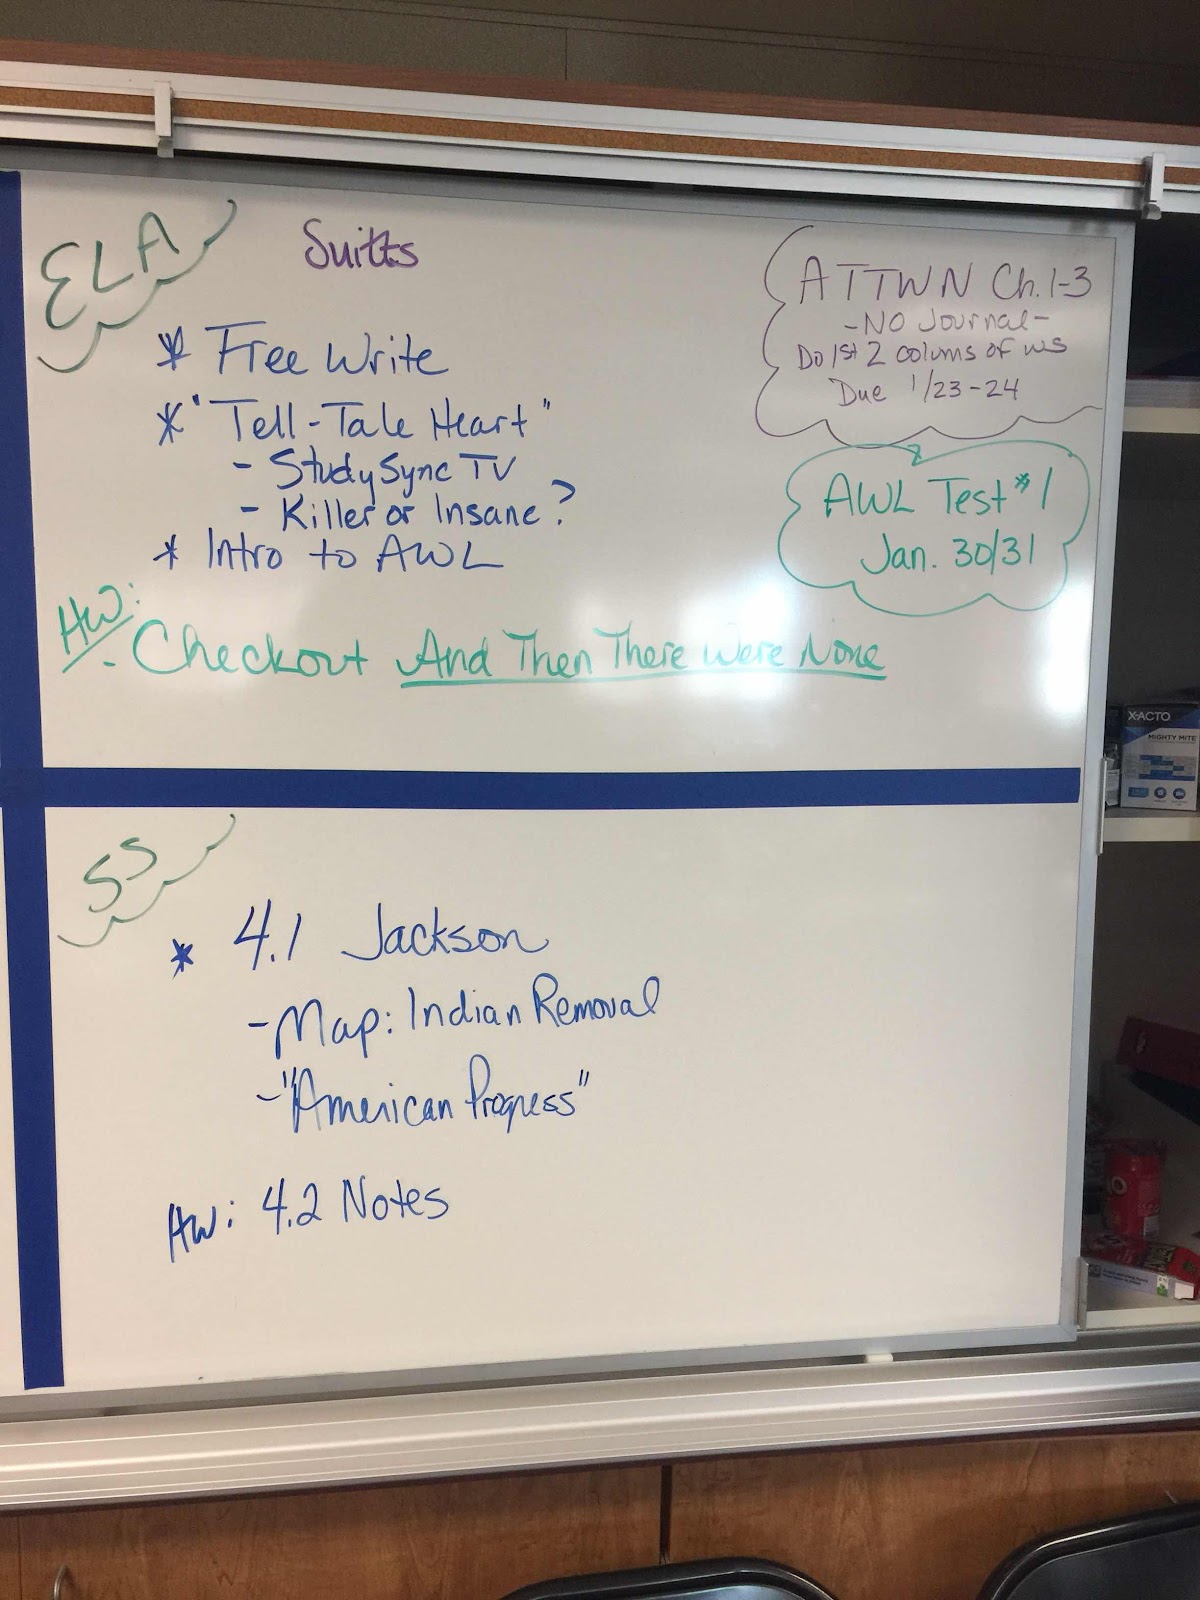 ELA
Suitts
* Free Write
* "Tell-Tale Heart"
- StudySync TV
- Killer or Insane?
* Intro to AWL
HW:
- Checkout And Then There Were None
ATTWN Ch. 1-3
- NO Journal -
Do 1st 2 colums of ws
Due 1/23-24
AWL Test #1
Jan. 30/31
SS
* 4.1 Jackson
- Map: Indian Removal
- "American Progress"
HW: 4.2 Notes
X-ACTO
MIGHTY MITE